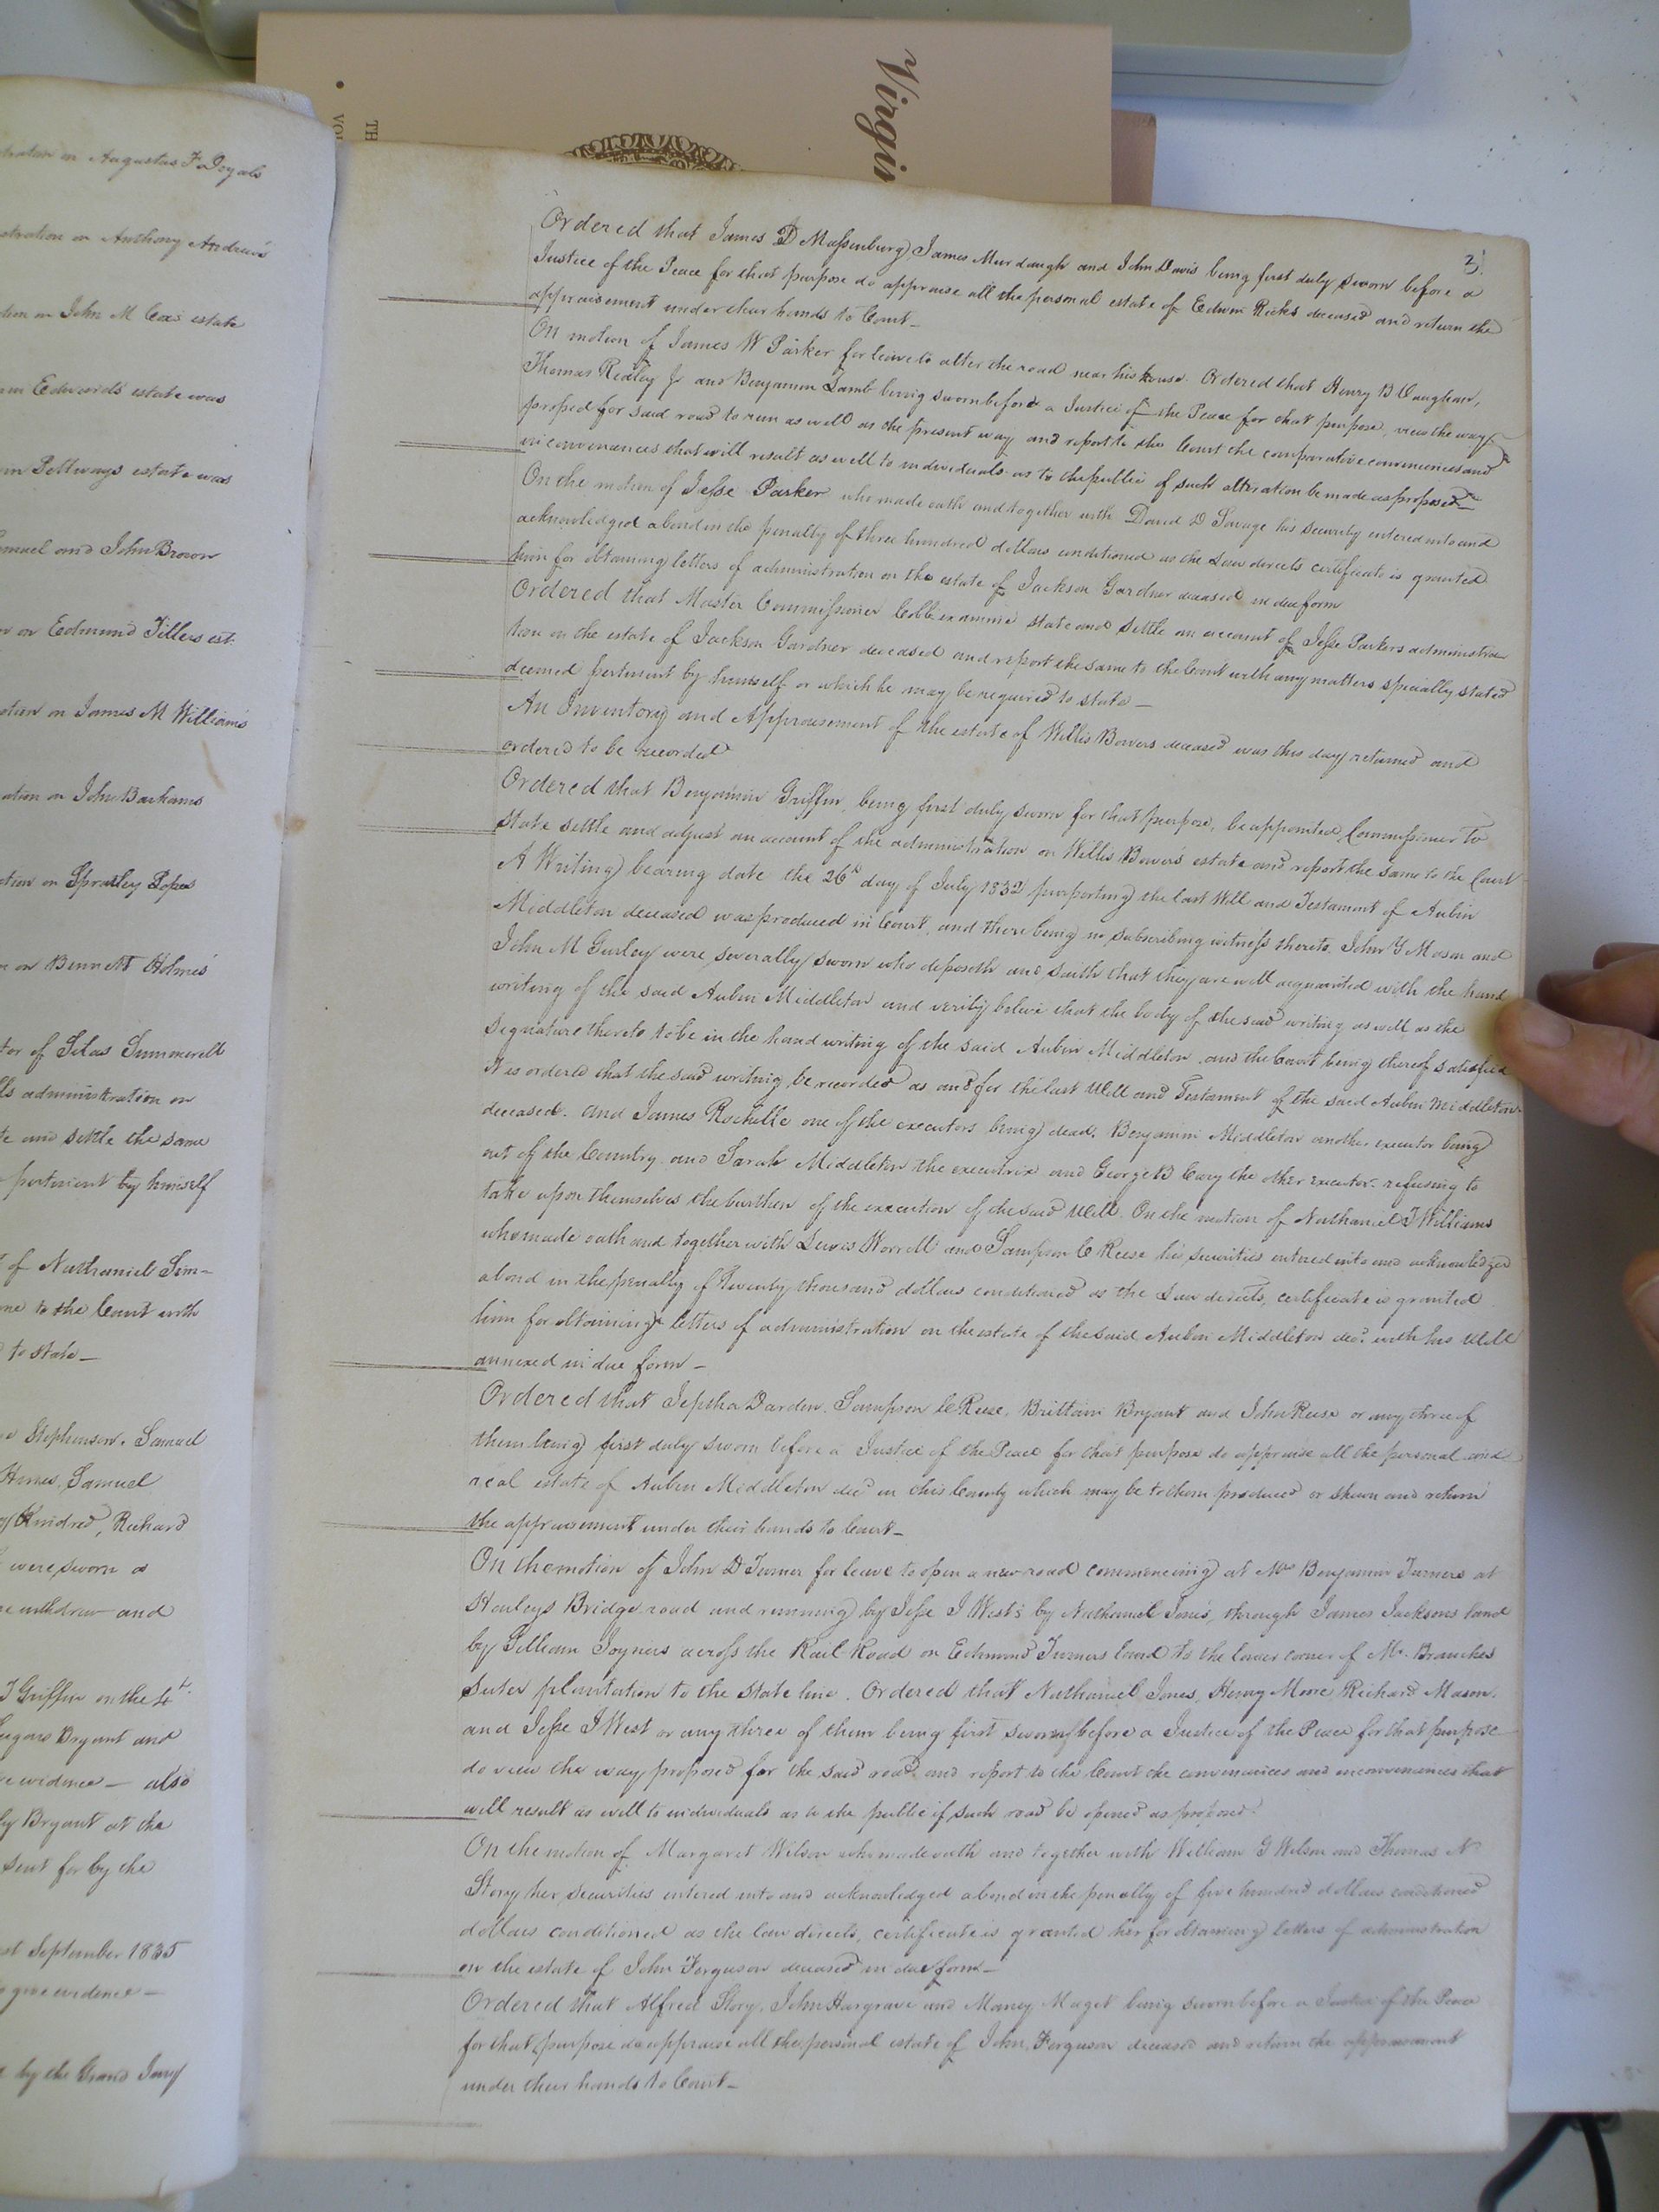 Virgin
TH
VOL
tration on Augustus F Doyals
stration on Anthony Andrews
tion on John M Cox's estate
am Edwards' estate was
Pettways estate was
muel and John Brown
on Edmund Tillers est.
ation on James M Williams
ation on John Barhams
ation on Spratley Popes
on Bennett Holmes'
tor of Silas Summerell
ls administration on
te and settle the same
pertinent by himself
of Nathaniel Sim-
me to the Court with
to state —
Stephenson, Samuel
Samuel
Kindred, Richard
were sworn a
withdrew and
J Griffin on the 4t.
Bryant and
evidence — also
Bryant at the
sent for by the
st September 1835
give evidence —
by the Grand Jury
2
Ordered that James D Massenburg James Murdaugh and John Davis being first duly sworn before a
Justice of the Peace for that purpose do appraise all the personal estate of Edwin Ricks deceased and return the
appraisement under their hands to Court —
On motion of James W Parker for leave to alter the road near his house. Ordered that Henry B Vaughan,
Thomas Ridley Jr and Benjamin Lamb being sworn before a Justice of the Peace for that purpose, view the way
proposed for said road to run as well as the present way and report to the Court the comparative conveniences and
inconveniences that will result as well to individuals as to the public if such alteration be made as proposed —
On the motion of Jesse Parker who made oath and together with David D Savage his security entered into and
acknowledged a bond in the penalty of three hundred dollars conditioned as the Law directs certificate is granted
him for obtaining letters of administration on the estate of Jackson Gardner deceased in due form
Ordered that Master Commissioner Cobb examine state and settle an account of Jesse Parkers administra
tion on the estate of Jackson Gardner deceased and report the same to the Court with any matters specially stated
deemed pertinent by himself or which he may be required to state —
An Inventory and Appraisement of the estate of Willis Bowers deceased was this day returned and
ordered to be recorded
Ordered that Benjamin Griffin, being first duly sworn for that purpose, be appointed Commissioner To
state settle and adjust an account of the administration on Willis Bowers estate and report the same to the Court
A Writing bearing date the 26th day of July 1832 purporting the last Will and Testament of Aubin
Middleton deceased was produced in Court, and there being no subscribing witness thereto, John Y Mason and
John M Gurley were severally sworn who deposeth and saith that they are well acquainted with the hand
writing of the said Aubin Middleton and verily believe that the body of the said writing as well as the
Signature thereto to be in the hand writing of the said Aubin Middleton and the Court being thereof satisfied
It is ordered that the said writing be recorded as and for the last Will and Testament of the said Aubin Middleton
deceased. and James Rochelle one of the executors being dead, Benjamin Middleton another executor being
out of the Country and Sarah Middleton the executrix and George B Cary the other executor refusing to
take upon themselves the burthen of the execution of the said Will. On the motion of Nathaniel J Williams
who made oath and together with Lewis Worrell and Sampson C Reese his securities entered into and acknowledged
a bond in the penalty of twenty thousand dollars conditioned as the Law directs, certificate is granted
him for obtaining letters of administration on the estate of the said Aubin Middleton decd. with his Will
annexed in due form —
Ordered that Jeptha Darden, Sampson C Reese, Brittain Bryant and John Reese or any three of
them being first duly sworn before a Justice of the Peace for that purpose do appraise all the personal and
real estate of Aubin Middleton decd in this County which may be to them produced or shown and return
the appraisement under their hands to Court —
On the motion of John D Turner for leave to open a new road commencing at Mrs Benjamin Turners at
Harleys Bridge road and running by Jesse J West's by Nathaniel Jones, through James Jacksons land
by Gilliam Joyners across the Rail Road on Edmond Turners land to the lower corner of Mr. Branches
Suter plantation to the State line. Ordered that Nathaniel Jones, Henry Moore, Richard Mason,
and Jesse J West or any three of them being first sworn before a Justice of the Peace for that purpose
do view the way proposed for the said road and report to the Court the conveniences and inconveniences that
will result as well to individuals as to the public if such road be opened as proposed.
On the motion of Margaret Wilson who made oath and together with William G Wilson and Thomas N
Story her securities entered into and acknowledged a bond in the penalty of five hundred dollars conditioned
dollars conditioned as the law directs, certificate is granted her for obtaining letters of administration
on the estate of John Ferguson deceased in due form —
Ordered that Alfred Story, John Hargrave and Maney Maget being sworn before a Justice of the Peace
for that purpose do appraise all the personal estate of John Ferguson deceased and return the appraisement
under their hands to Court —